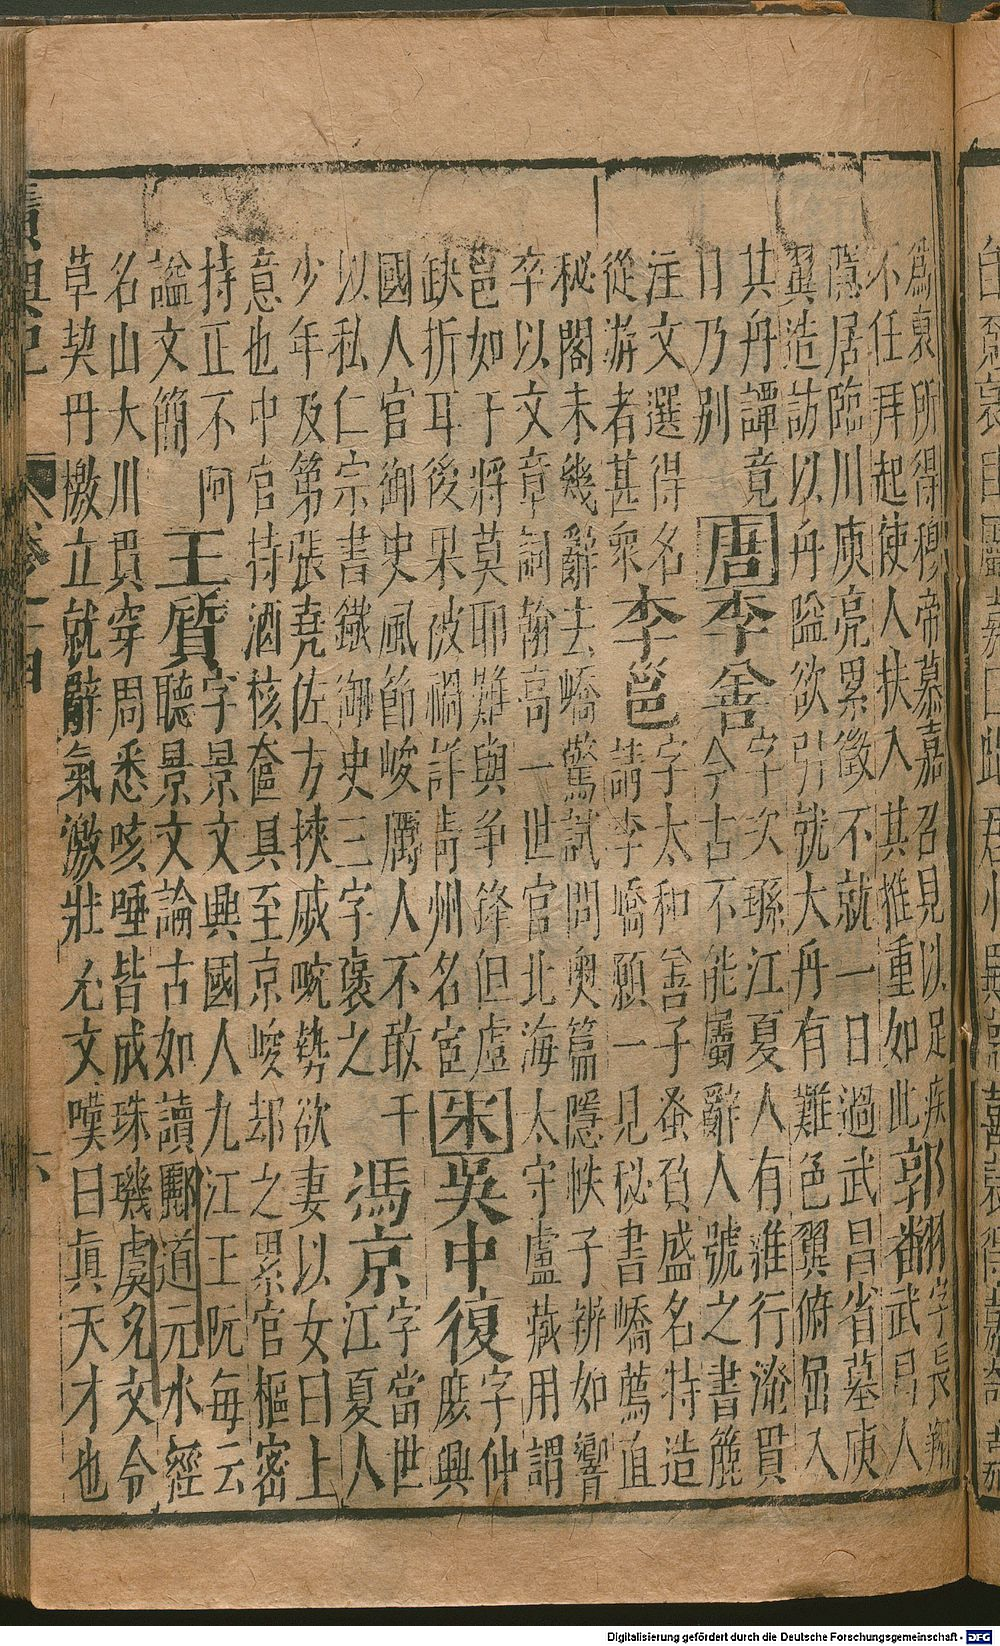 為東所得穆帝慕嘉召見以足疾
不任拜起使人扶入其推重如此
郭翻
字長翔
武昌人
隱居臨川庾亮累徵不就一日過武昌省墓庾
翼造訪以舟隘欲引就大舟有難色翼俯屈入
其舟譚竟
日乃別
周李善
字次孫江夏人有雅行淹貫
今古不能屬辭人號之書簏
注文選得名
從游者甚衆
李邕
字太和善子蚤負盛名特造
請李嶠願一見秘書嶠薦直
秘閣未幾辭去嶠驚試問奧篇隱帙子辨如響
卒以文章詞翰高一世官北海太守盧藏用謂
邕如于將莫耶難與争鋒但虛
缺折耳後果被禍詳青州名宦
宋吳中復
字仲
庶興
國人官御史風節峻厲人不敢干
以私仁宗書鐵御史三字褒之
馮京
字當世
江夏人
少年及第張堯佐方挾戚畹勢欲妻以女曰上
意也中官持酒核奩具至京峻却之累官樞密
持正不阿
謚文簡
王質
字景文興國人九江王阮每云
聽景文論古如讀酈道元水經
名山大川貫穿周悉咳唾皆成珠璣虞允文令
草契丹檄立就辭氣激壯允文嘆曰眞天才也
廣輿記
六
Digitalisierung gefördert durch die Deutsche Forschungsgemeinschaft - DFG